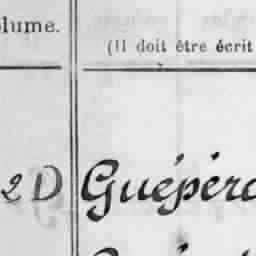 olume.
(Il doit être écrit
2D Guépéra